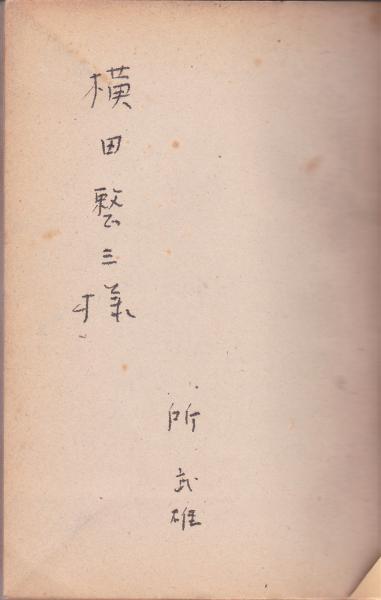 横田整三様
所武雄